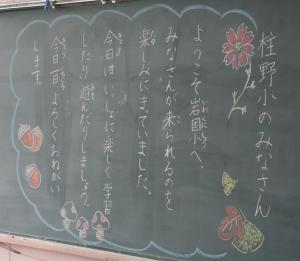 柱野小のみなさん
ようこそ岩国小へ。
みなさんが来られるのを
楽しみにきていました。
今日は、いっしょに楽しく学習
したり遊んだりしましょう。
今日一日、よろしくおねがい
します。